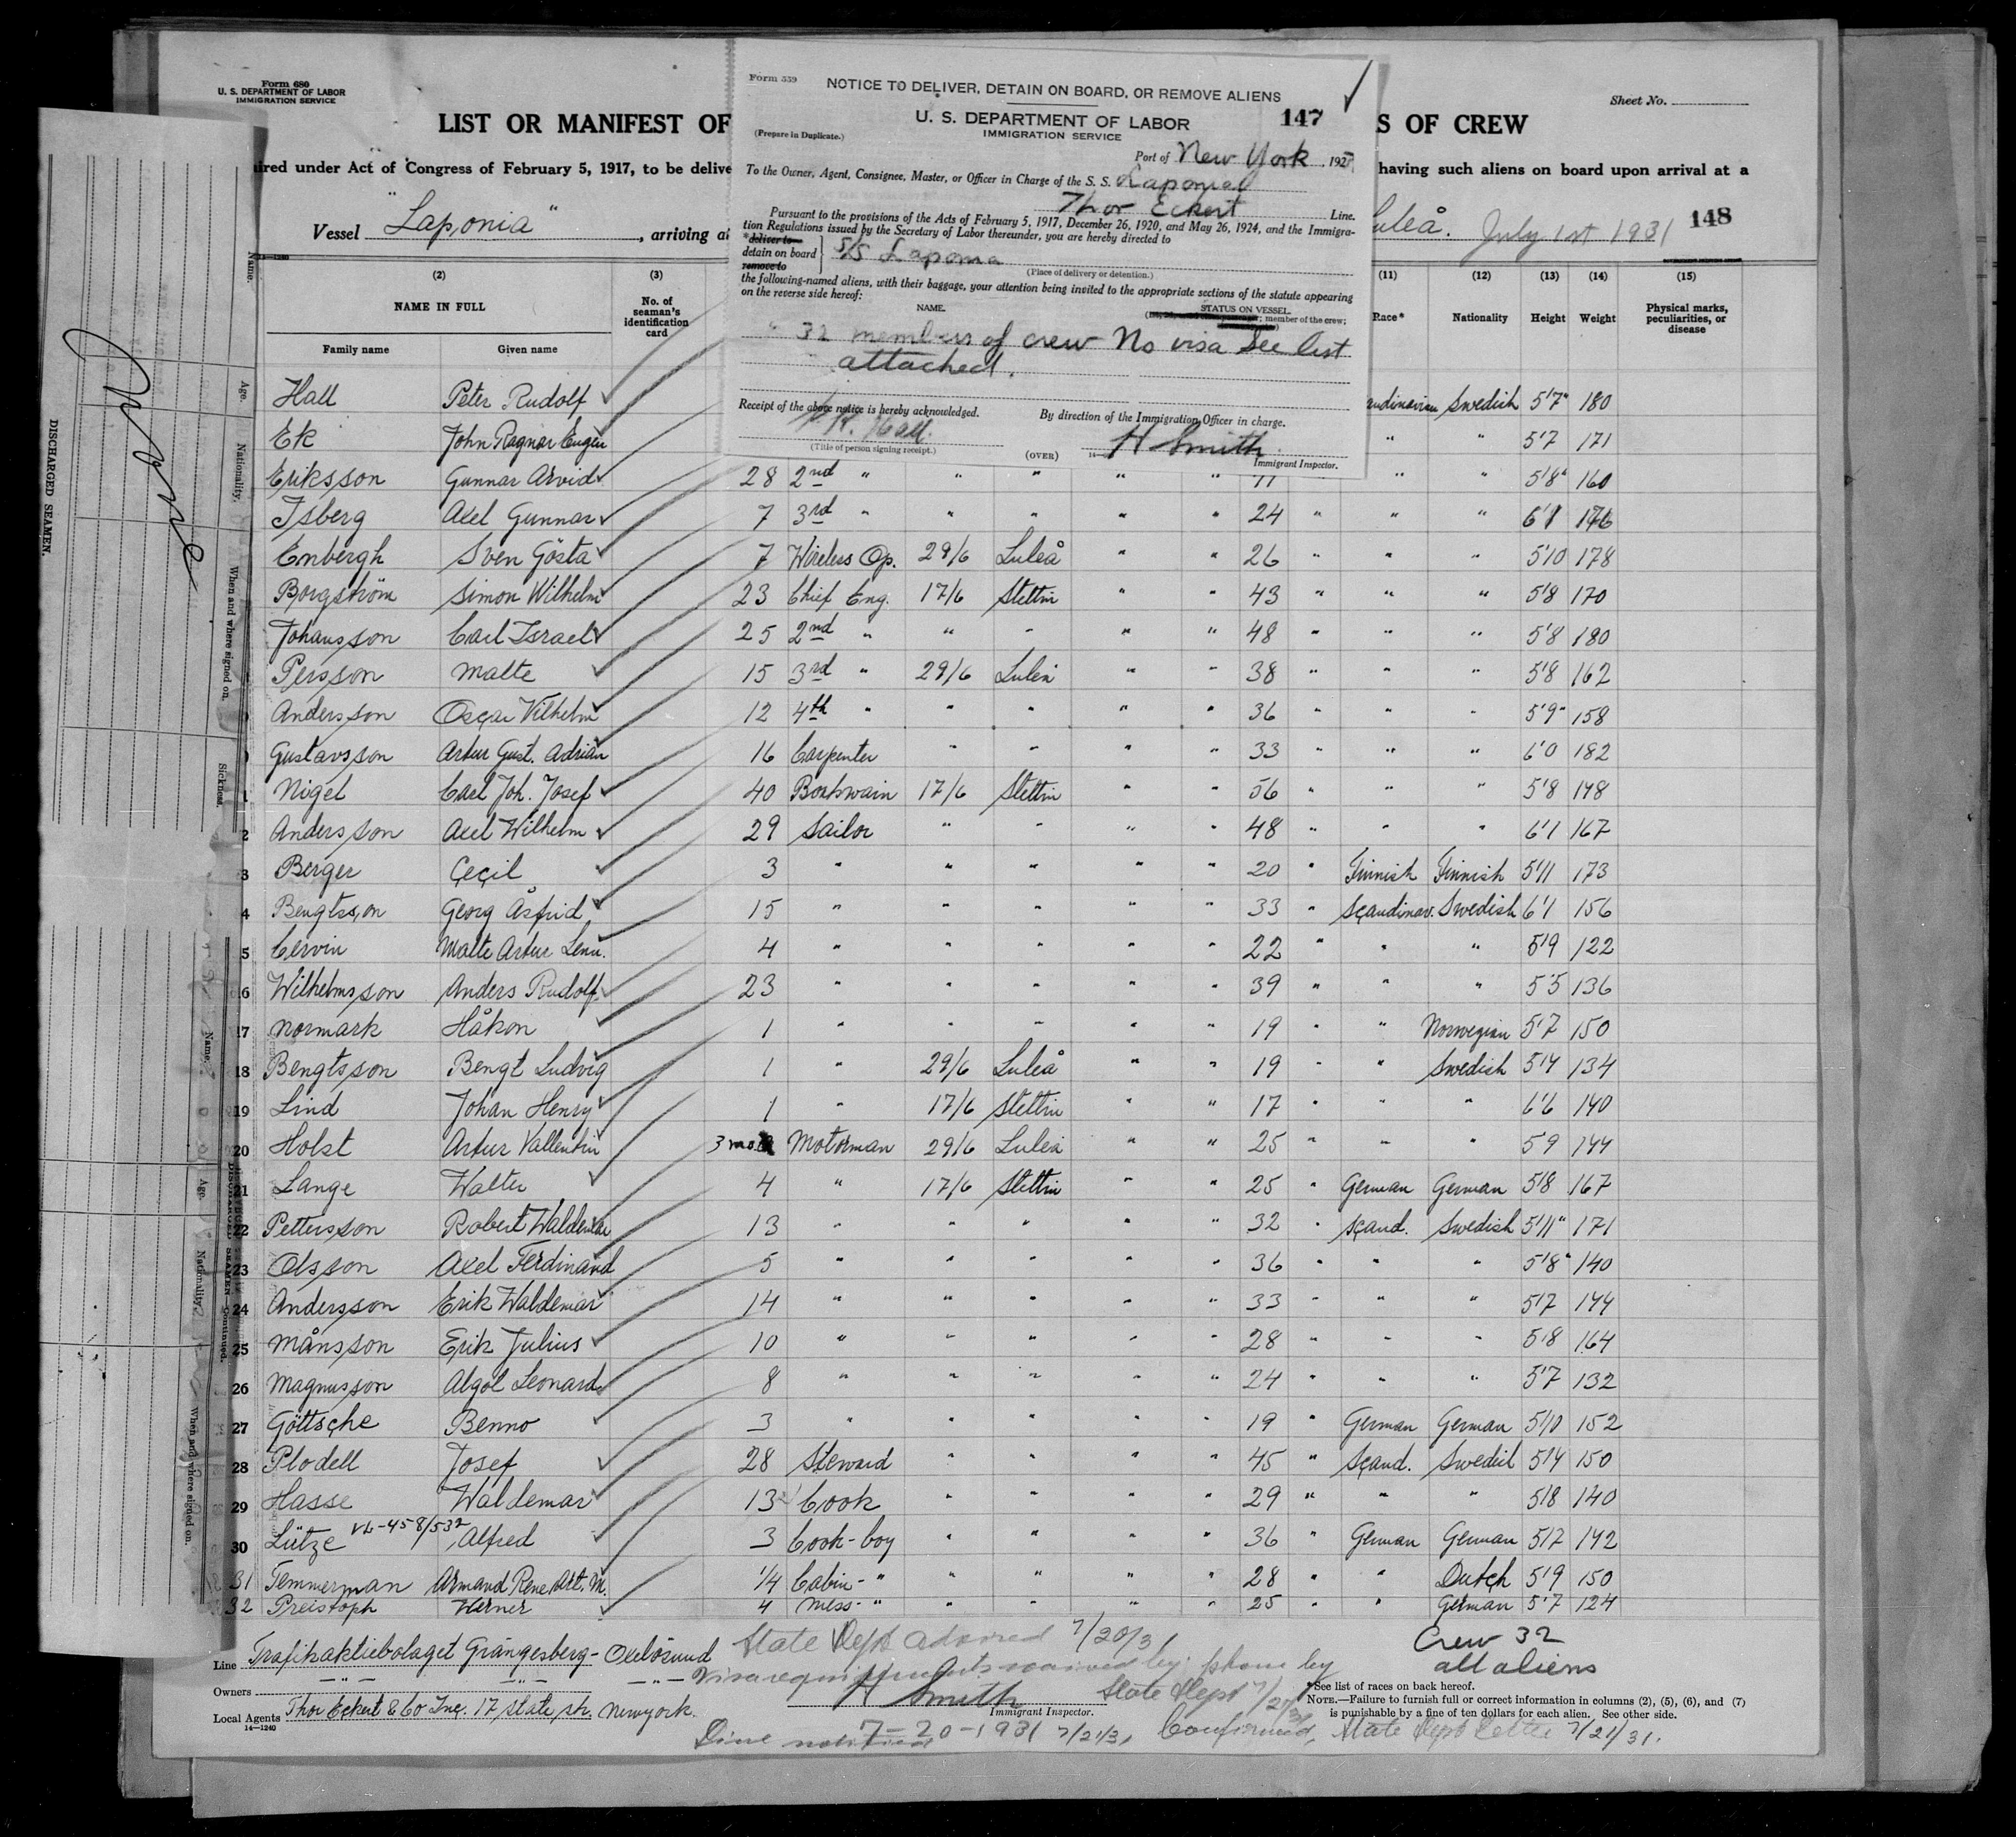 Form 680
U. S. DEPARTMENT OF LABOR
IMMIGRATION SERVICE
Sheet No.
LIST OR MANIFEST OF
S OF CREW
ired under Act of Congress of February 5, 1917, to be delive
having such aliens on board upon arrival at a
Vessel "Laponia" , arriving at
uleå. July 1st 1931 148
Form 559
NOTICE TO DELIVER, DETAIN ON BOARD, OR REMOVE ALIENS
U. S. DEPARTMENT OF LABOR
147
IMMIGRATION SERVICE
(Prepare in Duplicate.)
Port of New York , 192
To the Owner, Agent, Consignee, Master, or Officer in Charge of the S. S. Laponia
Thor Eckert Line.
Pursuant to the provisions of the Acts of February 5, 1917, December 26, 1920, and May 26, 1924, and the Immigra-
tion Regulations issued by the Secretary of Labor thereunder, you are hereby directed to
*deliver to
detain on board S/S Laponia
remove to
(Place of delivery or detention.)
the following-named aliens, with their baggage, your attention being invited to the appropriate sections of the statute appearing
on the reverse side hereof:
NAME. STATUS ON VESSEL
; member of the crew;
32 members of crew No visa See list
attached.
Receipt of the above notice is hereby acknowledged. By direction of the Immigration Officer in charge.
Hall. H Smith
(Title of person signing receipt.) (OVER) 14— Immigrant Inspector.
(2) (3) (11) (12) (13) (14) (15)
NAME IN FULL No. of seaman's identification card Race* Nationality Height Weight Physical marks, peculiarities, or disease
Family name Given name
Hall Peter Rudolf ✓ andinavian Swedish 5'7" 180
Ek John Ragnar Eugen " " 5'7 171
Eriksson Gunnar Arvid ✓ 28 2nd " " " " " " " 5'8" 160
Isberg Axel Gunnar ✓ 7 3rd " " " " " 24 " " " 6'1 176
Enbergh Sven Gösta ✓ 7 Wireless Op. 29/6 Luleå " " 26 " " " 5'10 178
Borgström Simon Wilhelm ✓ 23 Chief Eng. 17/6 Stettin " " 43 " " " 5'8 170
Johansson Carl Israel ✓ 25 2nd " " " " " 48 " " " 5'8 180
Persson Malte ✓ 15 3rd " 29/6 Luleå " " 38 " " " 5'8 162
Andersson Oscar Vilhelm ✓ 12 4th " " " " " 36 " " " 5'9" 158
Gustavsson Artur Gust. Adrian 16 Carpenter " " " " 33 " " " 6'0 182
1 Nigel Carl Joh. Josef ✓ 40 Boatswain 17/6 Stettin " " 56 " " " 5'8 148
2 Andersson Axel Wilhelm ✓ 29 Sailor " " " " 48 " " " 6'1 167
3 Berger Cecil ✓ 3 " " " " " 20 " Finnish Finnish 5'11 173
4 Bengtsson Georg Åsfrid ✓ 15 " " " " " 33 " Scandinav. Swedish 6'1 156
5 Cervin Malte Artur Lenn. 4 " " " " " 22 " " " 5'9 122
16 Wilhelmsson Anders Rudolf ✓ 23 " " " " " 39 " " " 5'5 136
17 Normark Håkon ✓ 1 " " " " " 19 " " Norwegian 5'7 150
18 Bengtsson Bengt Ludvig 1 " 29/6 Luleå " " 19 " " Swedish 5'4 134
19 Lind Johan Henry ✓ 1 " 17/6 Stettin " " 17 " " " 6'6 140
20 Holst Artur Vallentin 3 mo Motorman 29/6 Luleå " " 25 " " " 5'9 144
21 Lange Walter ✓ 4 " 17/6 Stettin " " 25 " German German 5'8 167
22 Pettersson Robert Waldemar 13 " " " " " 32 " Scand. Swedish 5'11" 171
23 Olsson Axel Ferdinand 5 " " " " " 36 " " " 5'8" 140
24 Andersson Erik Waldemar 14 " " " " " 33 " " " 5'7 144
25 Månsson Erik Julius ✓ 10 " " " " " 28 " " " 5'8 164
26 Magnusson Algol Leonard ✓ 8 " " " " " 24 " " " 5'7 132
27 Göttsche Benno ✓ 3 " " " " " 19 " German German 5'10 152
28 Plodell Josef ✓ 28 Steward " " " " 45 " Scand. Swedish 5'4 150
29 Hasse Waldemar ✓ 13 Cook " " " " 29 " " " 5'8 140
30 Lütze VL-458/532 Alfred ✓ 3 Cook-boy " " " " 36 " German German 5'7 142
31 Temmerman Armand Rene Art. M. 1/4 Cabin-" " " " " 28 " " Dutch 5'9 150
32 Preistoph Werner ✓ 4 Mess-" " " " " 25 " " German 5'7 124
State Dept advised 7/20/31
Crew 32
all aliens
Line Trafikaktiebolaget Grängesberg-Oxelösund
Visa requirements waived by phone by
State Dept 7/20/31
Owners —"— —"— —"—
H Smith
Immigrant Inspector.
Local Agents Thor Eckert & Co Inc. 17, State str. New york.
14—1240
*See list of races on back hereof.
NOTE.—Failure to furnish full or correct information in columns (2), (5), (6), and (7)
is punishable by a fine of ten dollars for each alien. See other side.
Line notified 7-20-1931 7/21/31 Confirmed, State Dept letter 7/21/31.
DISCHARGED SEAMEN.
None
Name.
Age.
Nationality.
When and where signed on.
Sickness.
DISCHARGED SEAMEN—Continued.
Name.
Age.
Nationality.
When and where signed on.